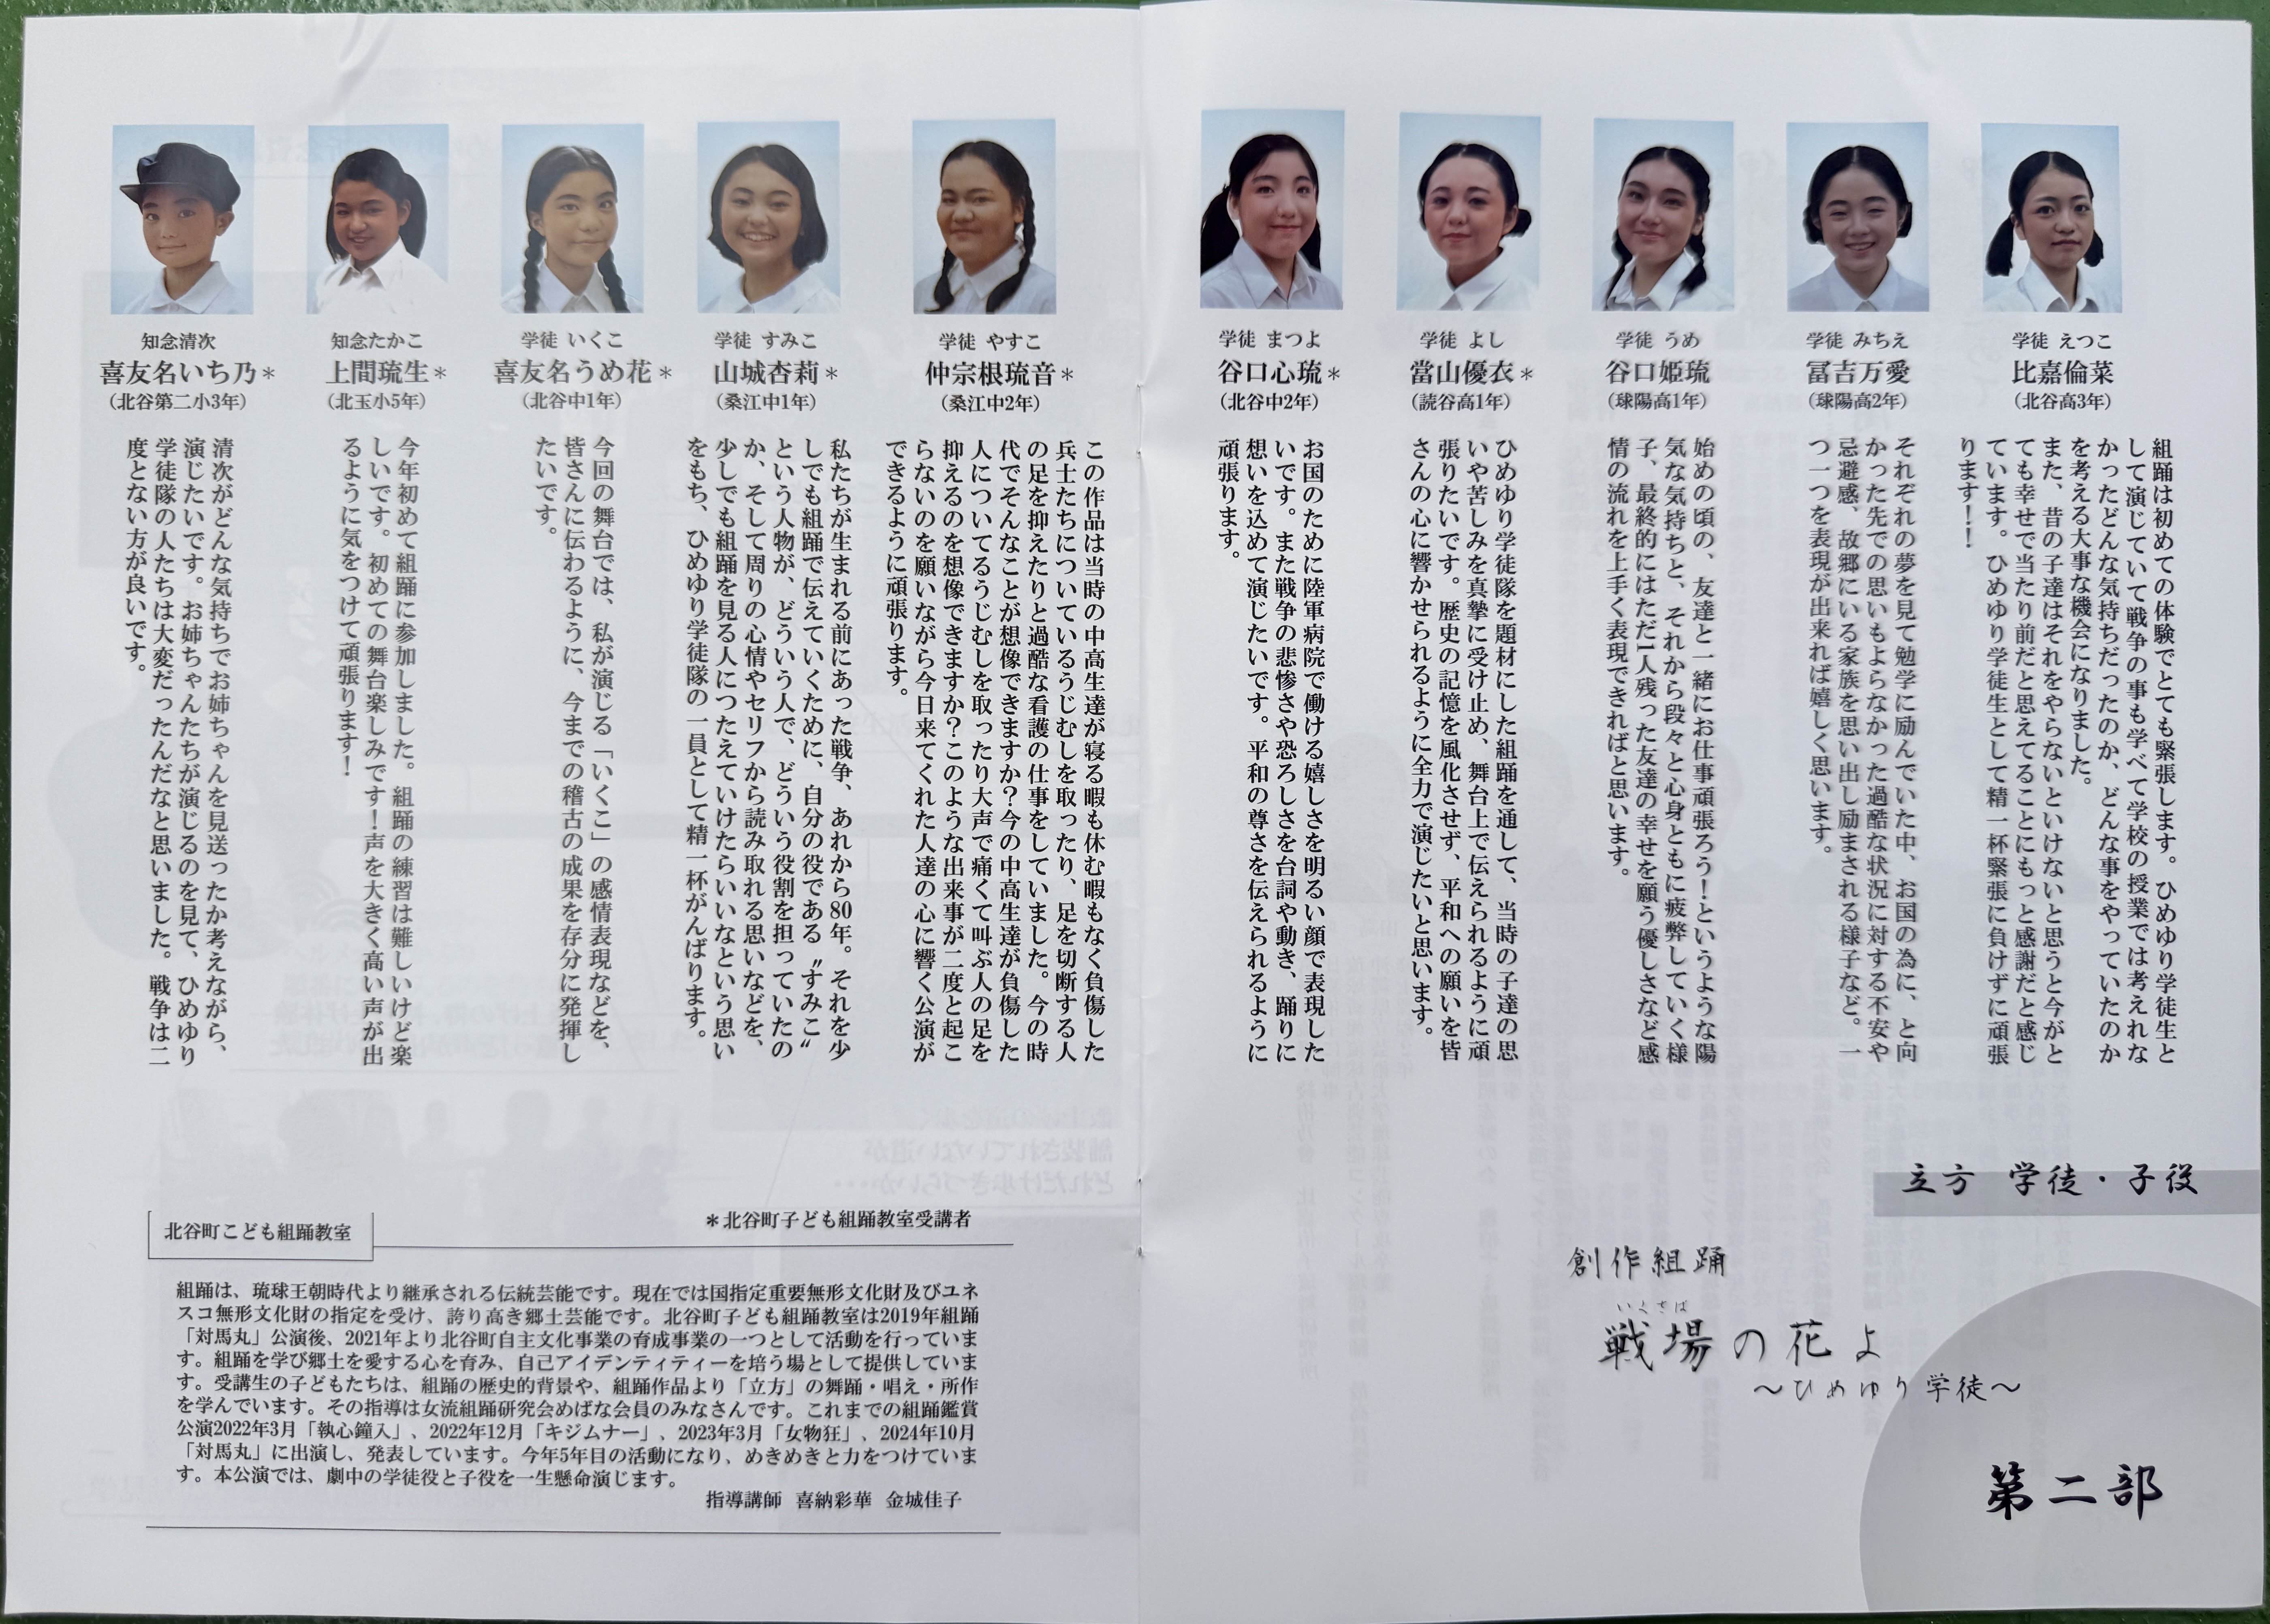 第二部
創作組踊
いくさば
戦場の花よ
～ひめゆり学徒～
立方 学徒・子役
学徒 えつこ
比嘉倫菜
（北谷高3年）
組踊は初めての体験でとても緊張します。ひめゆり学徒生と
して演じていて戦争の事も学べて学校の授業では考えれな
かったどんな気持ちだったのか、どんな事をやっていたのか
を考える大事な機会になりました。
また、昔の子達はそれをやらないといけないと思うと今がと
ても幸せで当たり前だと思えてることにもっと感謝だと感じ
ています。ひめゆり学徒生として精一杯緊張に負けずに頑張
ります！！
学徒 みちえ
冨吉万愛
（球陽高2年）
それぞれの夢を見て勉学に励んでいた中、お国の為に、と向
かった先での思いもよらなかった過酷な状況に対する不安や
忌避感、故郷にいる家族を思い出し励まされる様子など。一
つ一つを表現が出来れば嬉しく思います。
学徒 うめ
谷口姫琉
（球陽高1年）
始めの頃の、友達と一緒にお仕事頑張ろう！というような陽
気な気持ちと、それから段々と心身ともに疲弊していく様
子、最終的にはただ1人残った友達の幸せを願う優しさなど感
情の流れを上手く表現できればと思います。
学徒 よし
當山優衣＊
（読谷高1年）
ひめゆり学徒隊を題材にした組踊を通して、当時の子達の思
いや苦しみを真摯に受け止め、舞台上で伝えられるように頑
張りたいです。歴史の記憶を風化させず、平和への願いを皆
さんの心に響かせられるように全力で演じたいと思います。
学徒 まつよ
谷口心琉＊
（北谷中2年）
お国のために陸軍病院で働ける嬉しさを明るい顔で表現した
いです。また戦争の悲惨さや恐ろしさを台詞や動き、踊りに
想いを込めて演じたいです。平和の尊さを伝えられるように
頑張ります。
学徒 やすこ
仲宗根琉音＊
（桑江中2年）
この作品は当時の中高生達が寝る暇も休む暇もなく負傷した
兵士たちについているうじむしを取ったり、足を切断する人
の足を抑えたりと過酷な看護の仕事をしていました。今の時
代でそんなことが想像できますか？今の中高生達が負傷した
人についてるうじむしを取ったり大声で痛くて叫ぶ人の足を
抑えるのを想像できますか？このような出来事が二度と起こ
らないのを願いながら今日来てくれた人達の心に響く公演が
できるように頑張ります。
学徒 すみこ
山城杏莉＊
（桑江中1年）
私たちが生まれる前にあった戦争、あれから80年。それを少
しでも組踊で伝えていくために、自分の役である〝すみこ〟
という人物が、どういう人で、どういう役割を担っていたの
か、そして周りの心情やセリフから読み取れる思いなどを、
少しでも組踊を見る人につたえていけたらいいなという思い
をもち、ひめゆり学徒隊の一員として精一杯がんばります。
学徒 いくこ
喜友名うめ花＊
（北谷中1年）
今回の舞台では、私が演じる「いくこ」の感情表現などを、
皆さんに伝わるように、今までの稽古の成果を存分に発揮し
たいです。
知念たかこ
上間琉生＊
（北玉小5年）
今年初めて組踊に参加しました。組踊の練習は難しいけど楽
しいです。初めての舞台楽しみです！声を大きく高い声が出
るように気をつけて頑張ります！
知念清次
喜友名いち乃＊
（北谷第二小3年）
清次がどんな気持ちでお姉ちゃんを見送ったか考えながら、
演じたいです。お姉ちゃんたちが演じるのを見て、ひめゆり
学徒隊の人たちは大変だったんだなと思いました。戦争は二
度とない方が良いです。
＊北谷町子ども組踊教室受講者
北谷町こども組踊教室
組踊は、琉球王朝時代より継承される伝統芸能です。現在では国指定重要無形文化財及びユネ
スコ無形文化財の指定を受け、誇り高き郷土芸能です。北谷町子ども組踊教室は2019年組踊
「対馬丸」公演後、2021年より北谷町自主文化事業の育成事業の一つとして活動を行っていま
す。組踊を学び郷土を愛する心を育み、自己アイデンティティーを培う場として提供していま
す。受講生の子どもたちは、組踊の歴史的背景や、組踊作品より「立方」の舞踊・唱え・所作
を学んでいます。その指導は女流組踊研究会めばな会員のみなさんです。これまでの組踊鑑賞
公演2022年3月「執心鐘入」、2022年12月「キジムナー」、2023年3月「女物狂」、2024年10月
「対馬丸」に出演し、発表しています。今年5年目の活動になり、めきめきと力をつけていま
す。本公演では、劇中の学徒役と子役を一生懸命演じます。
指導講師 喜納彩華 金城佳子